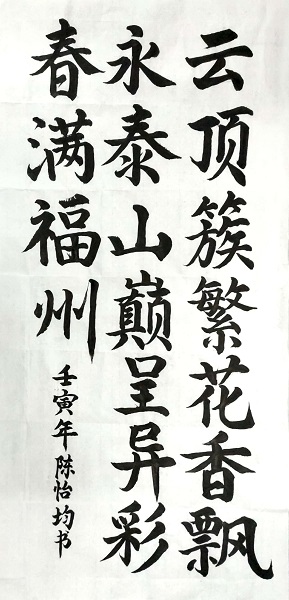 云顶簇繁花香飘
永泰山巅呈异彩
春满福州
壬寅年陈怡均书